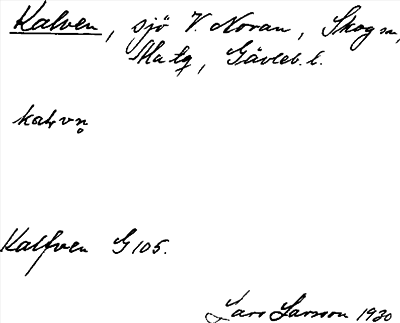 Kalven, sjö V. Noran, Skog sn,
Ma tg, Gävleb. l.
kaɫvn̥
Kalfven G 105.
Lars Larsson 1930